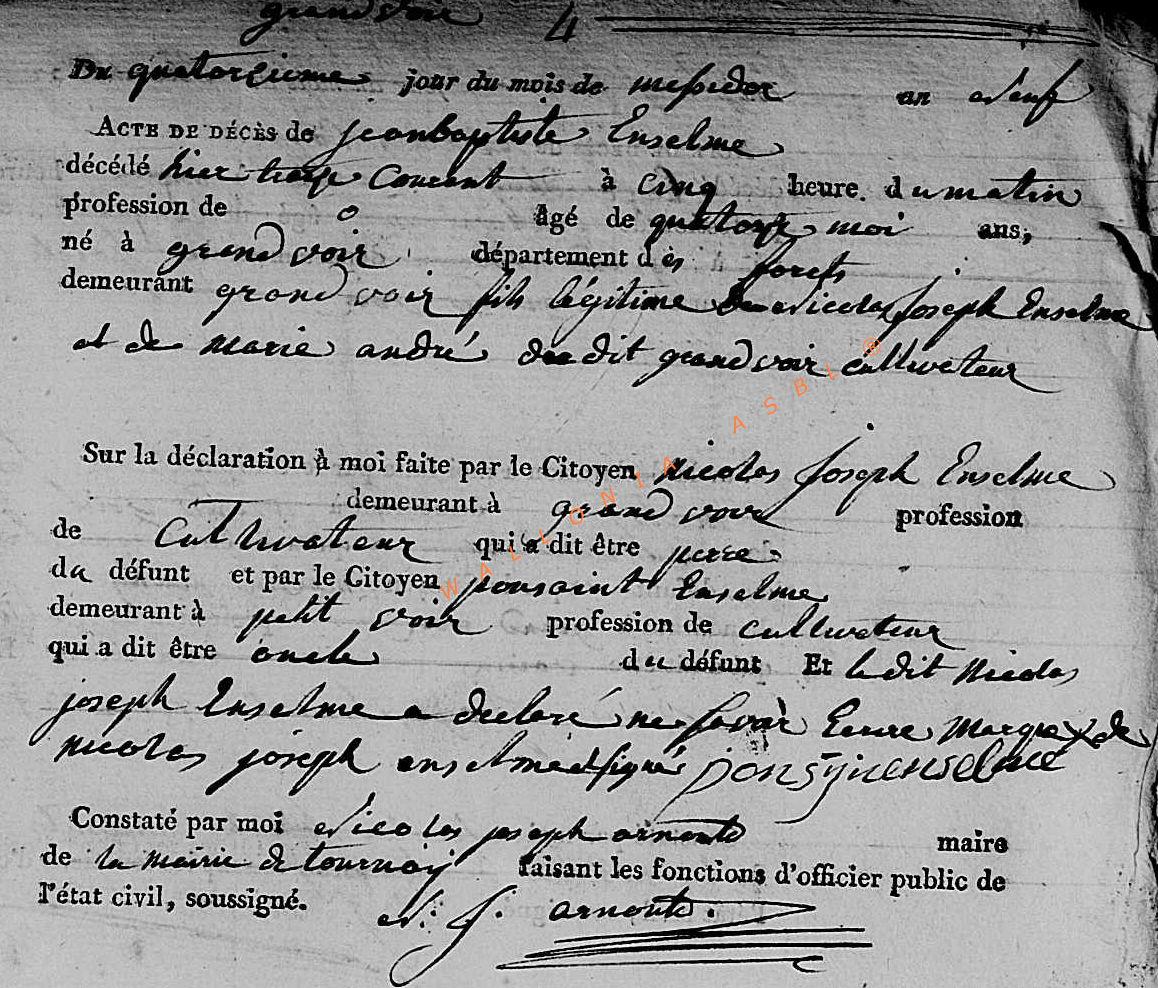 grandvoir 4
Du quatorzieme jour du mois de messidor an neuf
ACTE DE DÉCÈS de jeanbaptiste Enselme
décédé hier treize Courant à cinq heure. du matin
profession de o âgé de quatorze moi ans,
né à grandvoir département des forets
demeurant grandvoir fils légitime de nicolas joseph Enselme
et de marie andré dudit grandvoir cultivateur
Sur la déclaration à moi faite par le Citoyen nicolas joseph Enselme
demeurant à grandvoir profession
de Cultivateur qui a dit être perre
du défunt et par le Citoyen ponsaint Enselme
demeurant à petit voir profession de cultivateur
qui a dit être oncle du défunt Et ledit Nicolas
joseph Enselme a declaré ne savoir Ecrire Marque x de
nicolas joseph enselme et signé enselme
Constaté par moi nicolas joseph arnould maire
de la mairie de tournay faisant les fonctions d'officier public de
l'état civil, soussigné. N. J. arnould.
WALLONIA ASBL ®